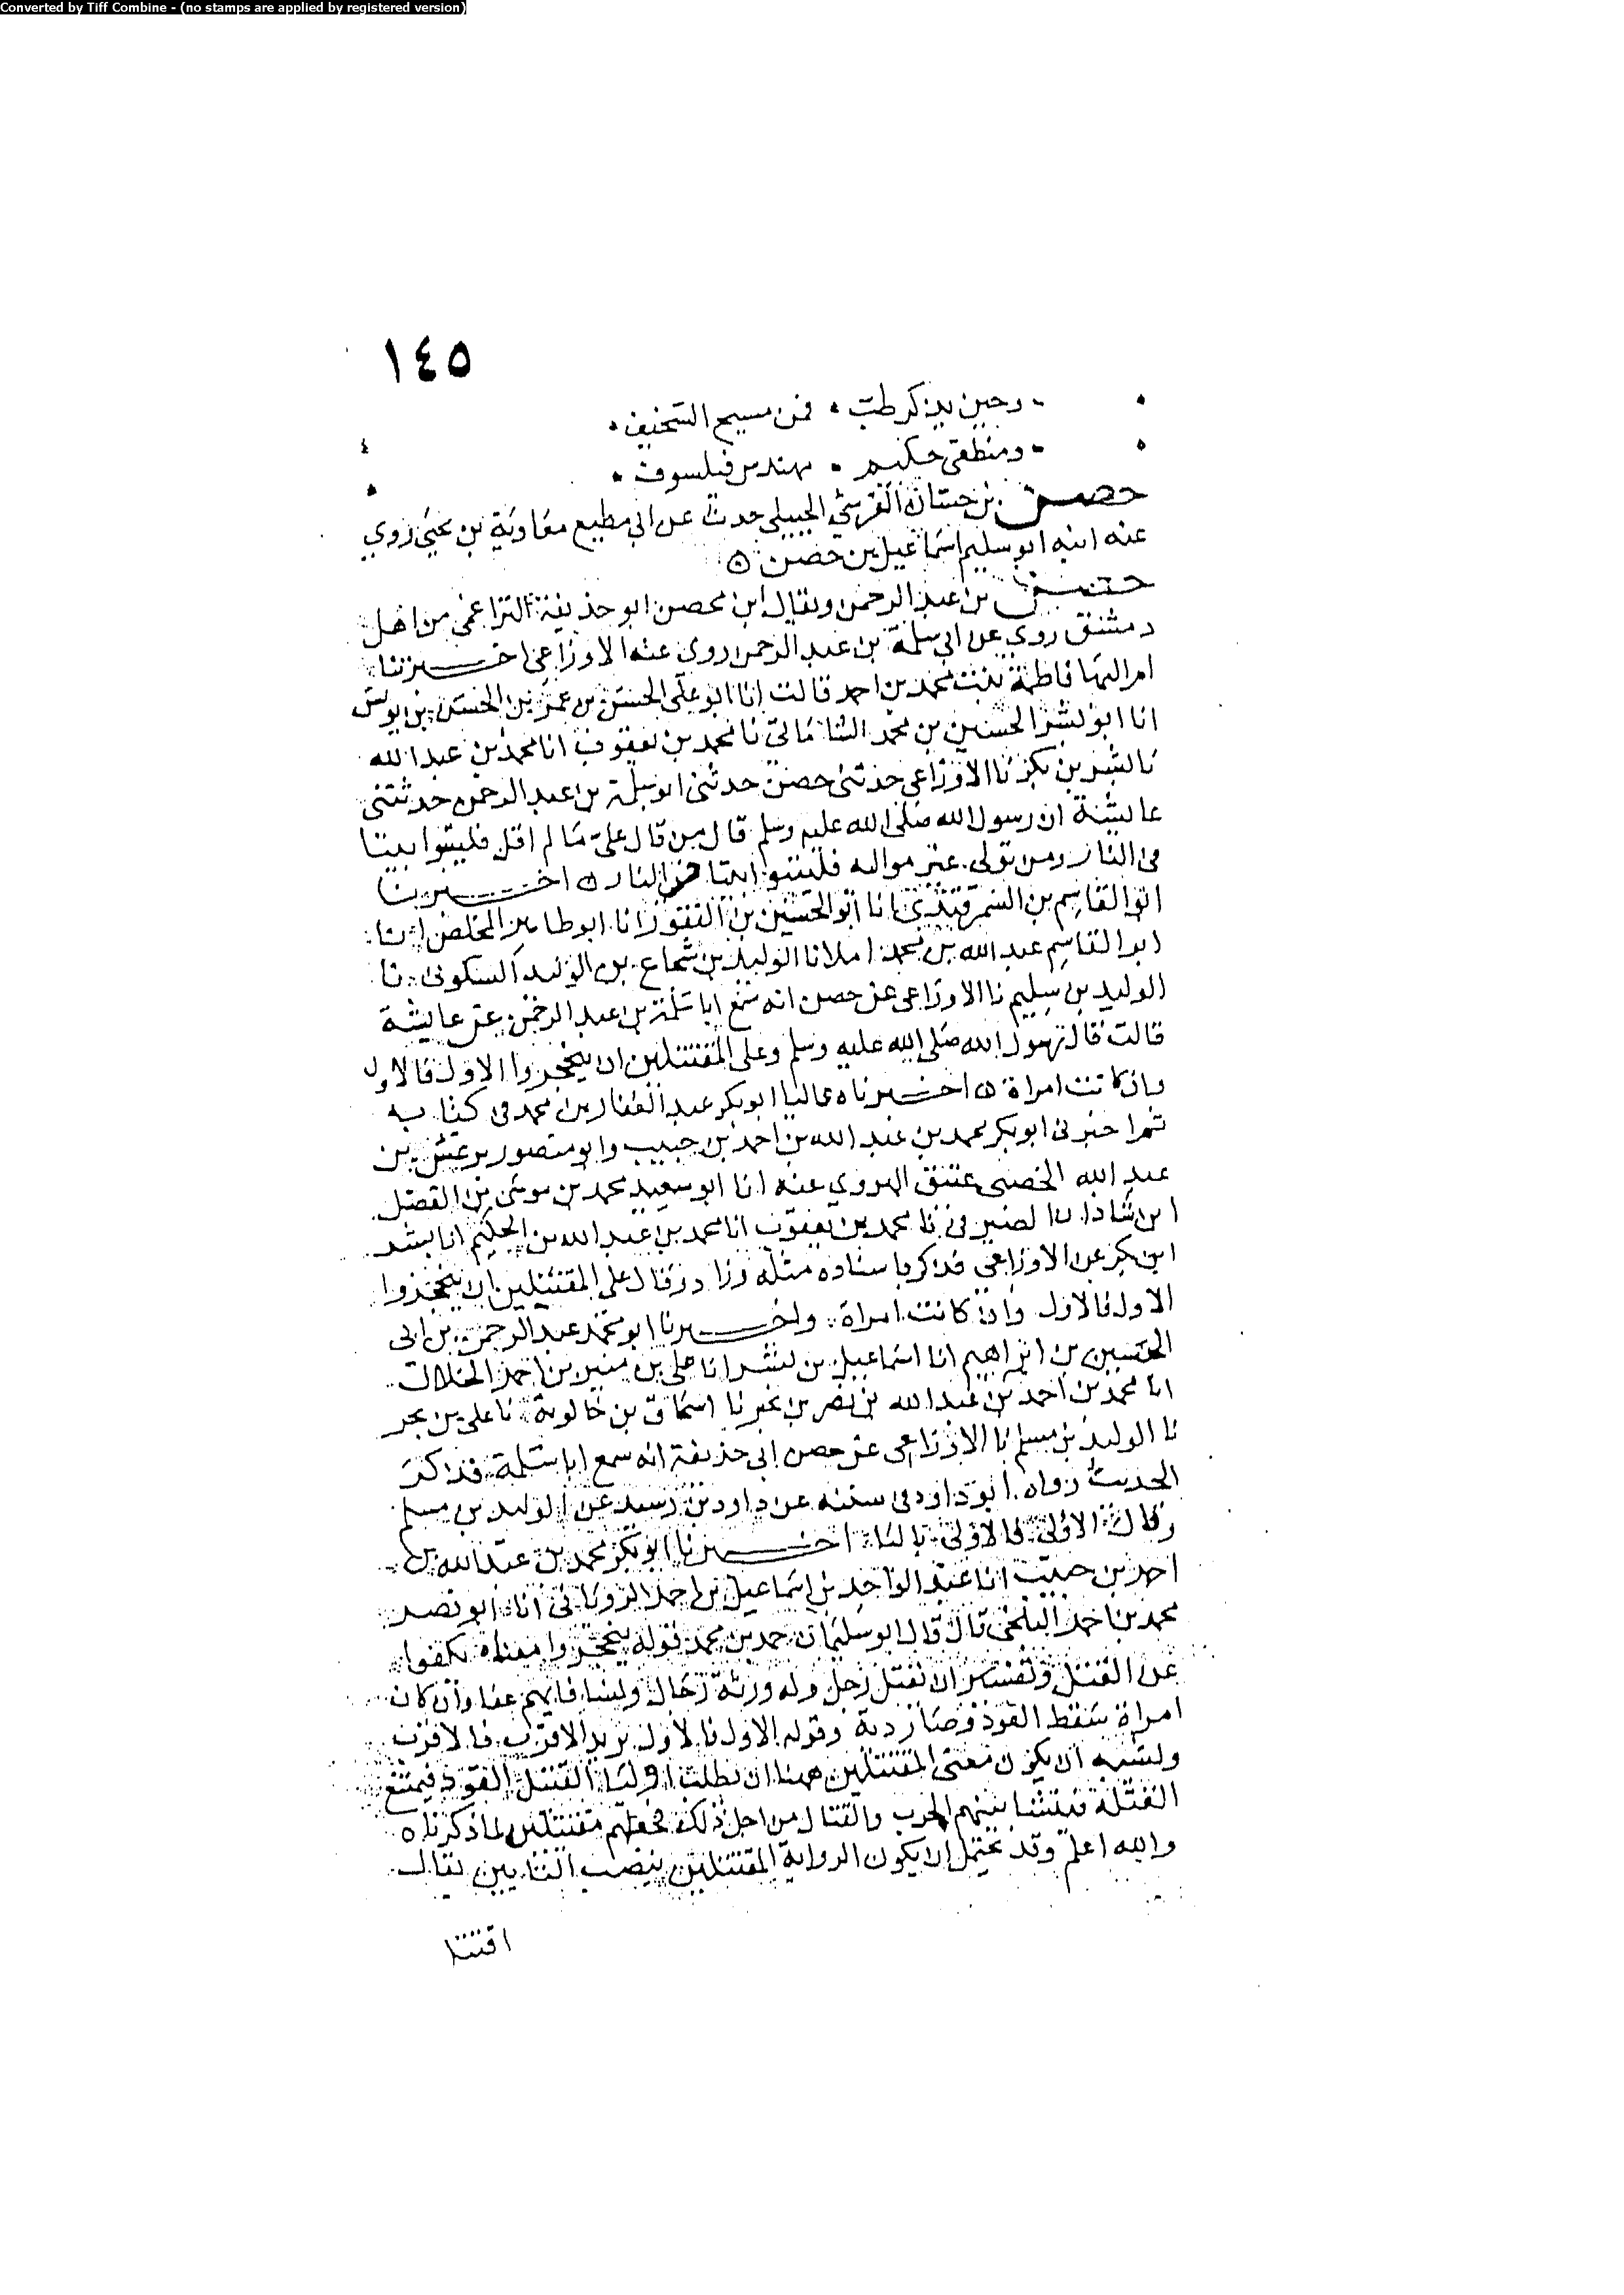 Converted by Tiff Combine - (no stamps are applied by registered version)
١٤٥
وحين يذكر طب فمن مسيح السخيف
ومنطقي حكيم مهندس فيلسوف
حصن بن حسان القرشي الجبيلي حدث عن ابي مطيع معاوية بن يحيى روى
عنه ابنه ابو سليم اسماعيل بن حصن
حصن بن عبد الرحمن ويقال ابن محصن ابو حذيفة التراغمي من اهل
دمشق روى عن ابي سلمة بن عبد الرحمن روى عنه الاوزاعي اخبرتنا
ام البها فاطمة بنت محمد بن احمد قالت انا ابو علي الحسن بن عمر بن الحسن بن يونس
انا ابو بشر الحسين بن محمد نا محمد بن يعقوب انا محمد بن عبد الله
نا بشر بن بكر نا الاوزاعي حدثني حصن حدثني ابو سلمة بن عبد الرحمن حدثتني
عايشة ان رسول الله صلى الله عليه وسلم قال من قال علي ما لم اقل فليتبوا بيتا
في النار ومن تولى غير مواليه فليتبوا بيتا من النار اخبرنا
ابو القاسم بن السمرقندي انا ابو الحسين بن النقور انا ابو طاهر المخلص نا
ابو القاسم عبد الله بن محمد املا نا الوليد بن شجاع بن الوليد السكوني نا
الوليد بن سليم نا الاوزاعي عن حصن انه سمع ابا سلمة بن عبد الرحمن عن عايشة
قالت قال رسول الله صلى الله عليه وسلم وعلى المقتتلين ان ينحجزوا الاول فالاول
وان كانت امراة اخبرناه عاليا ابو بكر عبد الغفار بن محمد في كتابه
ثم اخبرني ابو بكر محمد بن عبد الله بن احمد بن حبيب وابو منصور بن
عبد الله عتيق الهروي عنه انا ابو سعيد محمد بن موسى بن الفضل
ابن شاذان الصيرفي نا محمد بن يعقوب انا محمد بن عبد الله بن الحكم انا بشر
ابن بكر عن الاوزاعي فذكر باسناده مثله وزاد وقال على المقتتلين ان ينحجزوا
الاول فالاول وان كانت امراة واخبرنا ابو محمد عبد الرحمن بن ابي
الحسين بن ابراهيم انا اسماعيل بن بشر انا علي بن منير بن احمد الخلال
انا محمد بن احمد بن عبد الله بن نصر بن نا اسحاق بن خالوية نا علي بن بحر
نا الوليد بن مسلم نا الاوزاعي عن حصن ابي حذيفة انه سمع ابا سلمة فذكر
الحديث رواه ابو داود في سننه عن داود بن رشيد عن الوليد بن مسلم
وقال الاولى فالاولى باليا اخبرنا ابو بكر محمد بن عبد الله بن
احمد بن حبيب انا عبد الواحد بن اسماعيل بن احمد الروياني انا ابو نصر
محمد بن احمد البلخي قال قال ابو سليمان حمد بن محمد قوله ينحجزوا معناه يكفوا
عن القتل وتفسير ان يقتل رجل وله ورثة رجال ونسا فايهم عفا وان كان
امراة سقط القود وصار دية وقوله الاول فالاول يريد الاقرب فالاقرب
ويشبه ان يكون معنى المقتتلين ههنا ان يطلب اوليا القتيل القود فيمتنع
القتلة فينشا بينهم الحرب والقتال من اجل ذلك فجعلهم مقتتلين لما ذكرناه
والله اعلم وقد يحتمل ان يكون الرواية المقتتلين بنصب التايين يقال
اقتتل